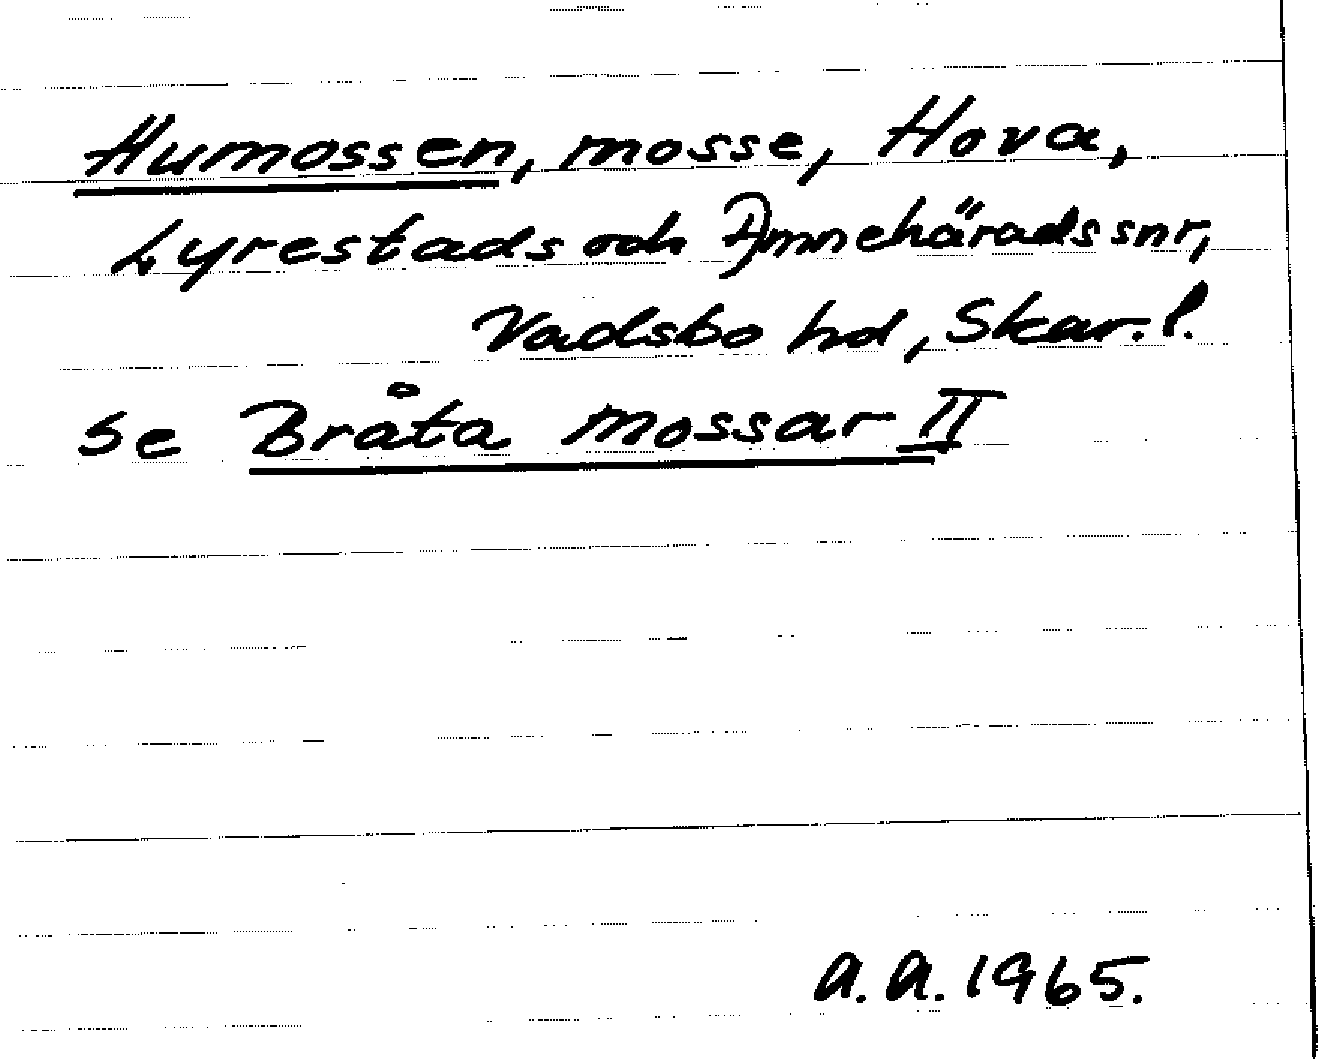 Humossen, mosse, Hova,
Lyrestads och Amnehärads snr,
Vadsbo hd, Skar. l.
se Bråta mossar II
A. A. 1965.